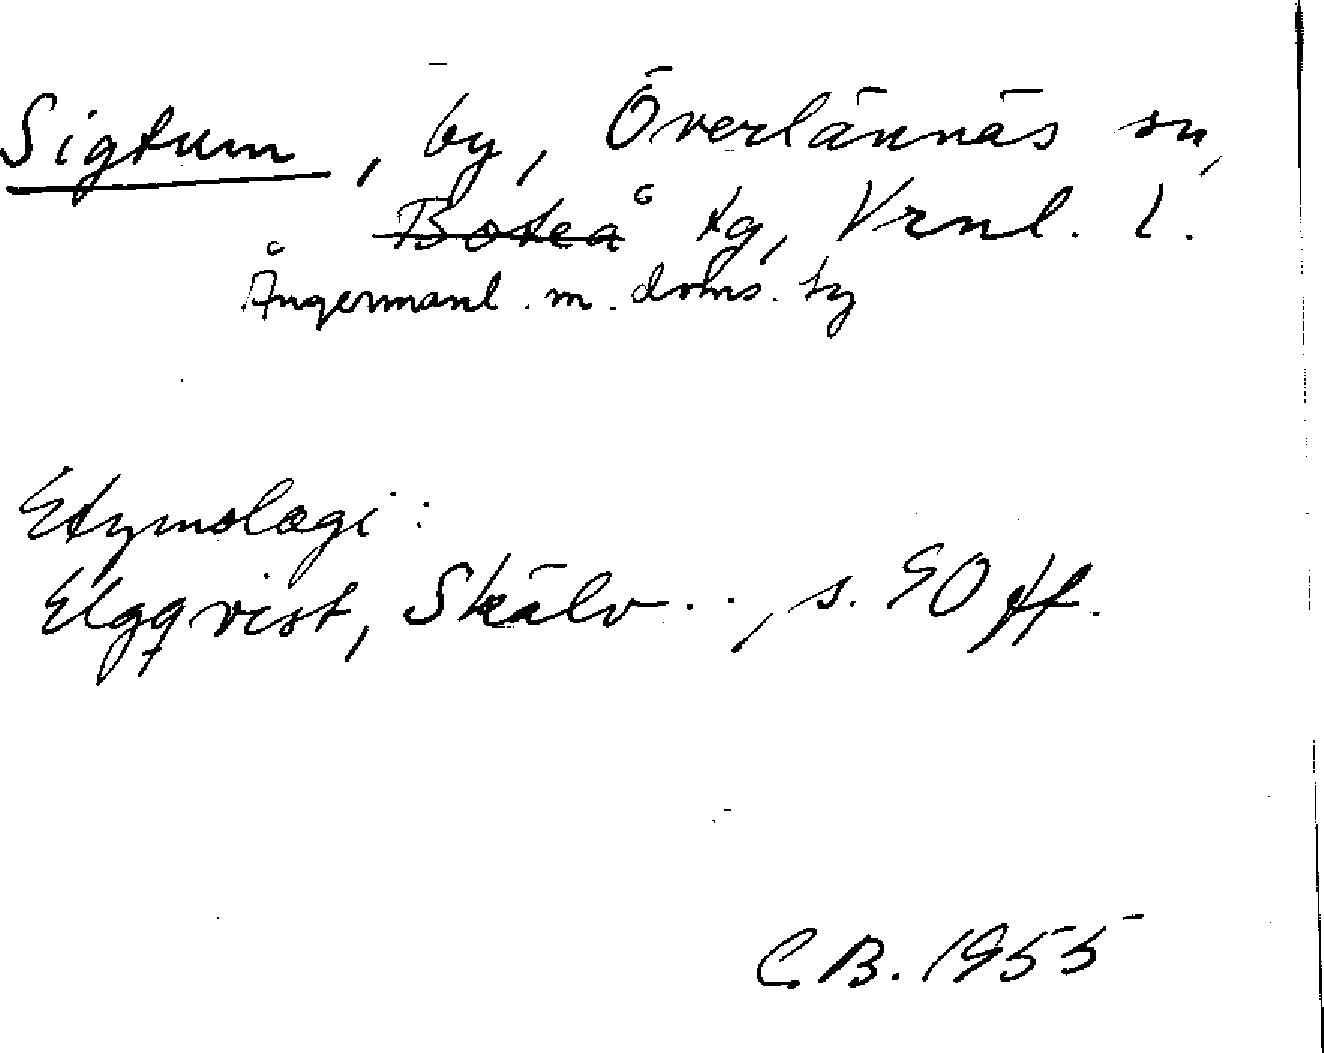 Sigtum, by, Överlännäs sn,
Boteå tg, Vrnl. l.
Ångermanl. m. doms. tg
Etymologi:
Elgqvist, Skälv.., s. 90 ff.
C.B. 1955